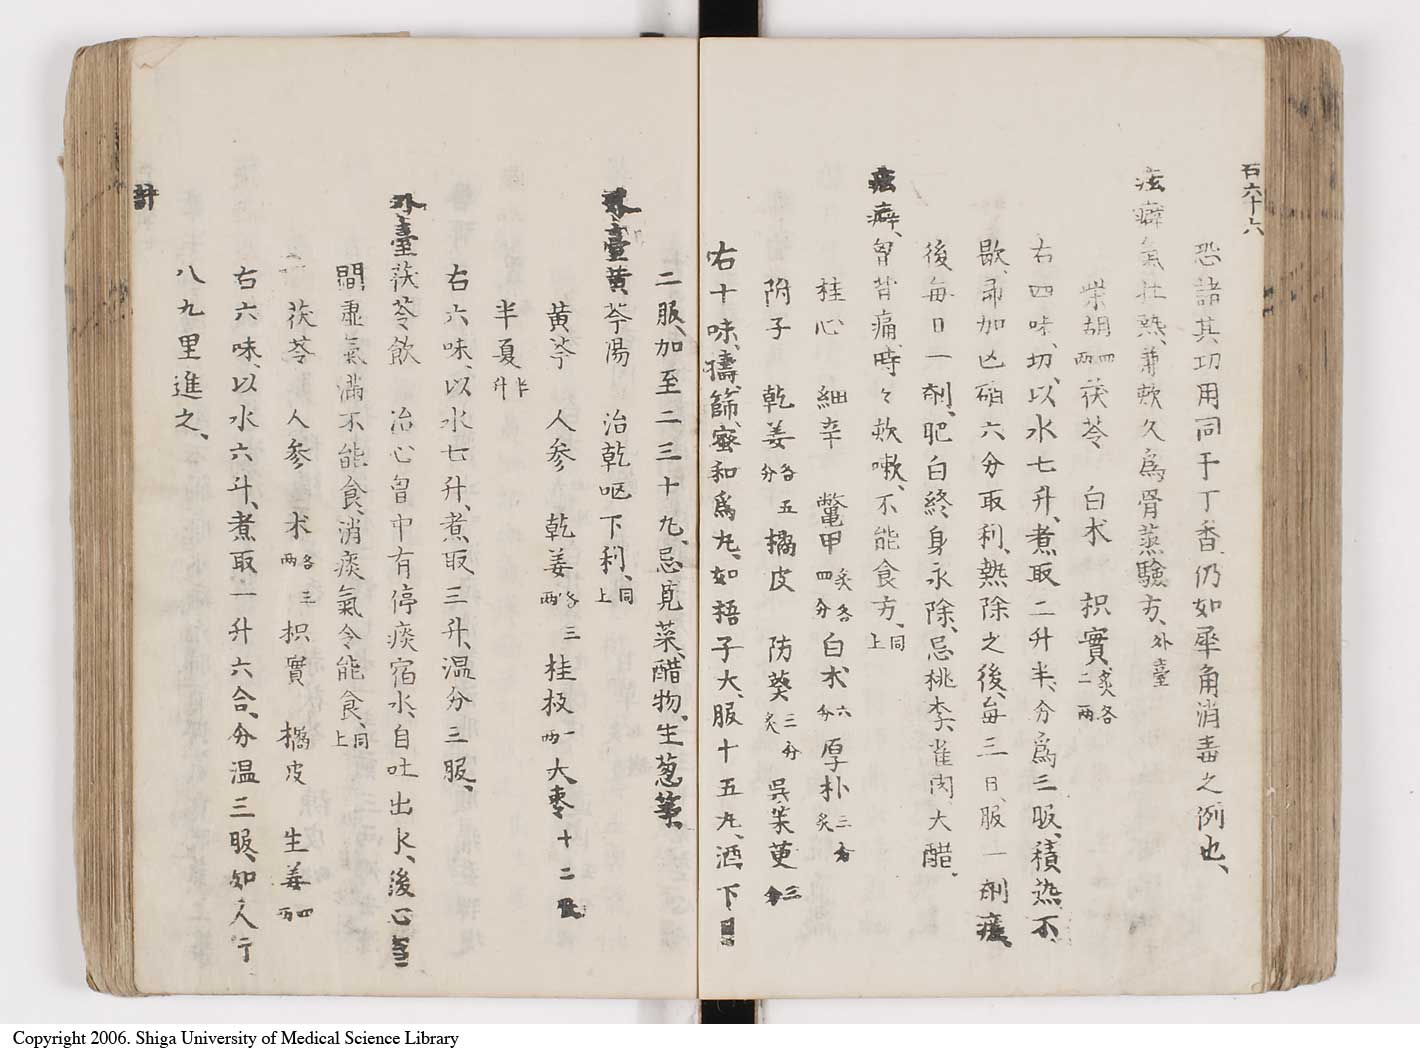 石六十六
恐諸其功用同于丁香仍如犀角消毒之例也、
痃癖氣壮熱、兼欬久爲骨蒸驗方、外臺
柴胡四兩 茯苓 白朮 枳實、炙各二兩
右四味、切、以水七升、煮取二升半、分爲三服、積熱不
歇、即加芒硝六分取利、熱除之後毎三日、服一劑瘥、
後毎日一剤、肥白終身永除、忌桃李雀肉大醋、
痃癖、胷背痛、時々欬嗽、不能食方、同上
桂心 細辛 鼈甲炙各四分 白朮六分 厚朴三分炙
附子 乾姜各五分 橘皮 防葵三分炙 呉茱萸三分
右十味、擣篩、蜜和爲丸、如梧子大、服十五丸、酒下日
二服、加至二三十丸、忌莧菜、醋物、生葱等、
外臺黄芩湯 治乾呕下利、同上
黄芩 人参 乾姜各三兩 桂枝一兩 大棗十二枚
半夏半升
右六味、以水七升、煮取三升、温分三服、
外臺茯苓飲 治心胷中有停痰宿水、自吐出水、後心胷
間虚氣滿不能食、消痰氣令能食、同上
茯苓 人参 朮各三兩 枳實 橘皮 生姜四兩
右六味、以水六斗、煮取一升六合、分温三服、如人行
八九里進之、